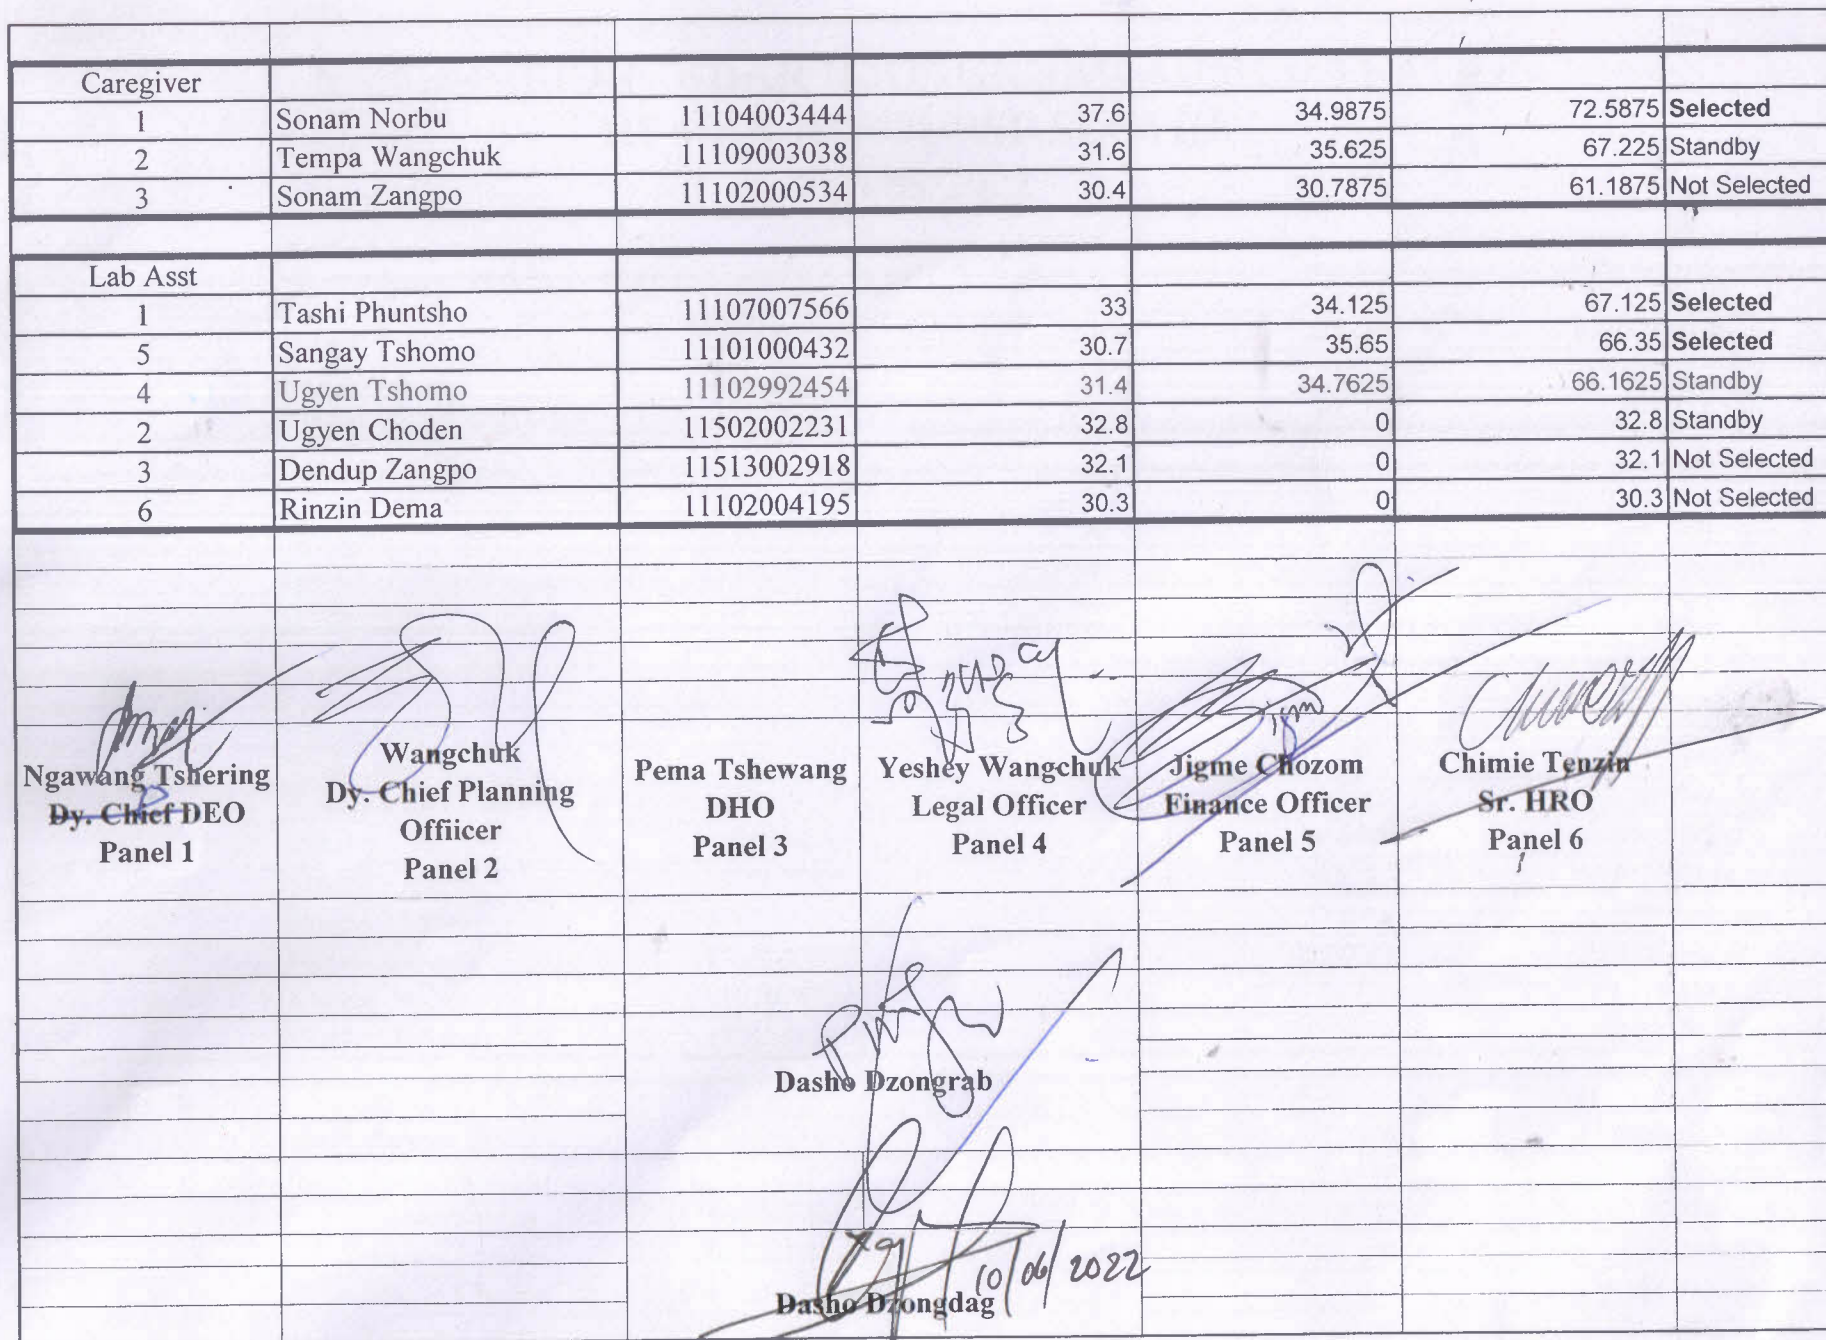 Caregiver
1 Sonam Norbu 11104003444 37.6 34.9875 72.5875 Selected
2 Tempa Wangchuk 11109003038 31.6 35.625 67.225 Standby
3 Sonam Zangpo 11102000534 30.4 30.7875 61.1875 Not Selected
Lab Asst
1 Tashi Phuntsho 11107007566 33 34.125 67.125 Selected
5 Sangay Tshomo 11101000432 30.7 35.65 66.35 Selected
4 Ugyen Tshomo 11102992454 31.4 34.7625 66.1625 Standby
2 Ugyen Choden 11502002231 32.8 0 32.8 Standby
3 Dendup Zangpo 11513002918 32.1 0 32.1 Not Selected
6 Rinzin Dema 11102004195 30.3 0 30.3 Not Selected
Ngawang Tshering
Dy. Chief DEO
Panel 1
Wangchuk
Dy. Chief Planning
Offiicer
Panel 2
Pema Tshewang
DHO
Panel 3
Yeshey Wangchuk
Legal Officer
Panel 4
Jigme Chozom
Finance Officer
Panel 5
Chimie Tenzin
Sr. HRO
Panel 6
Dasho Dzongrab
10/06/2022
Dasho Dzongdag